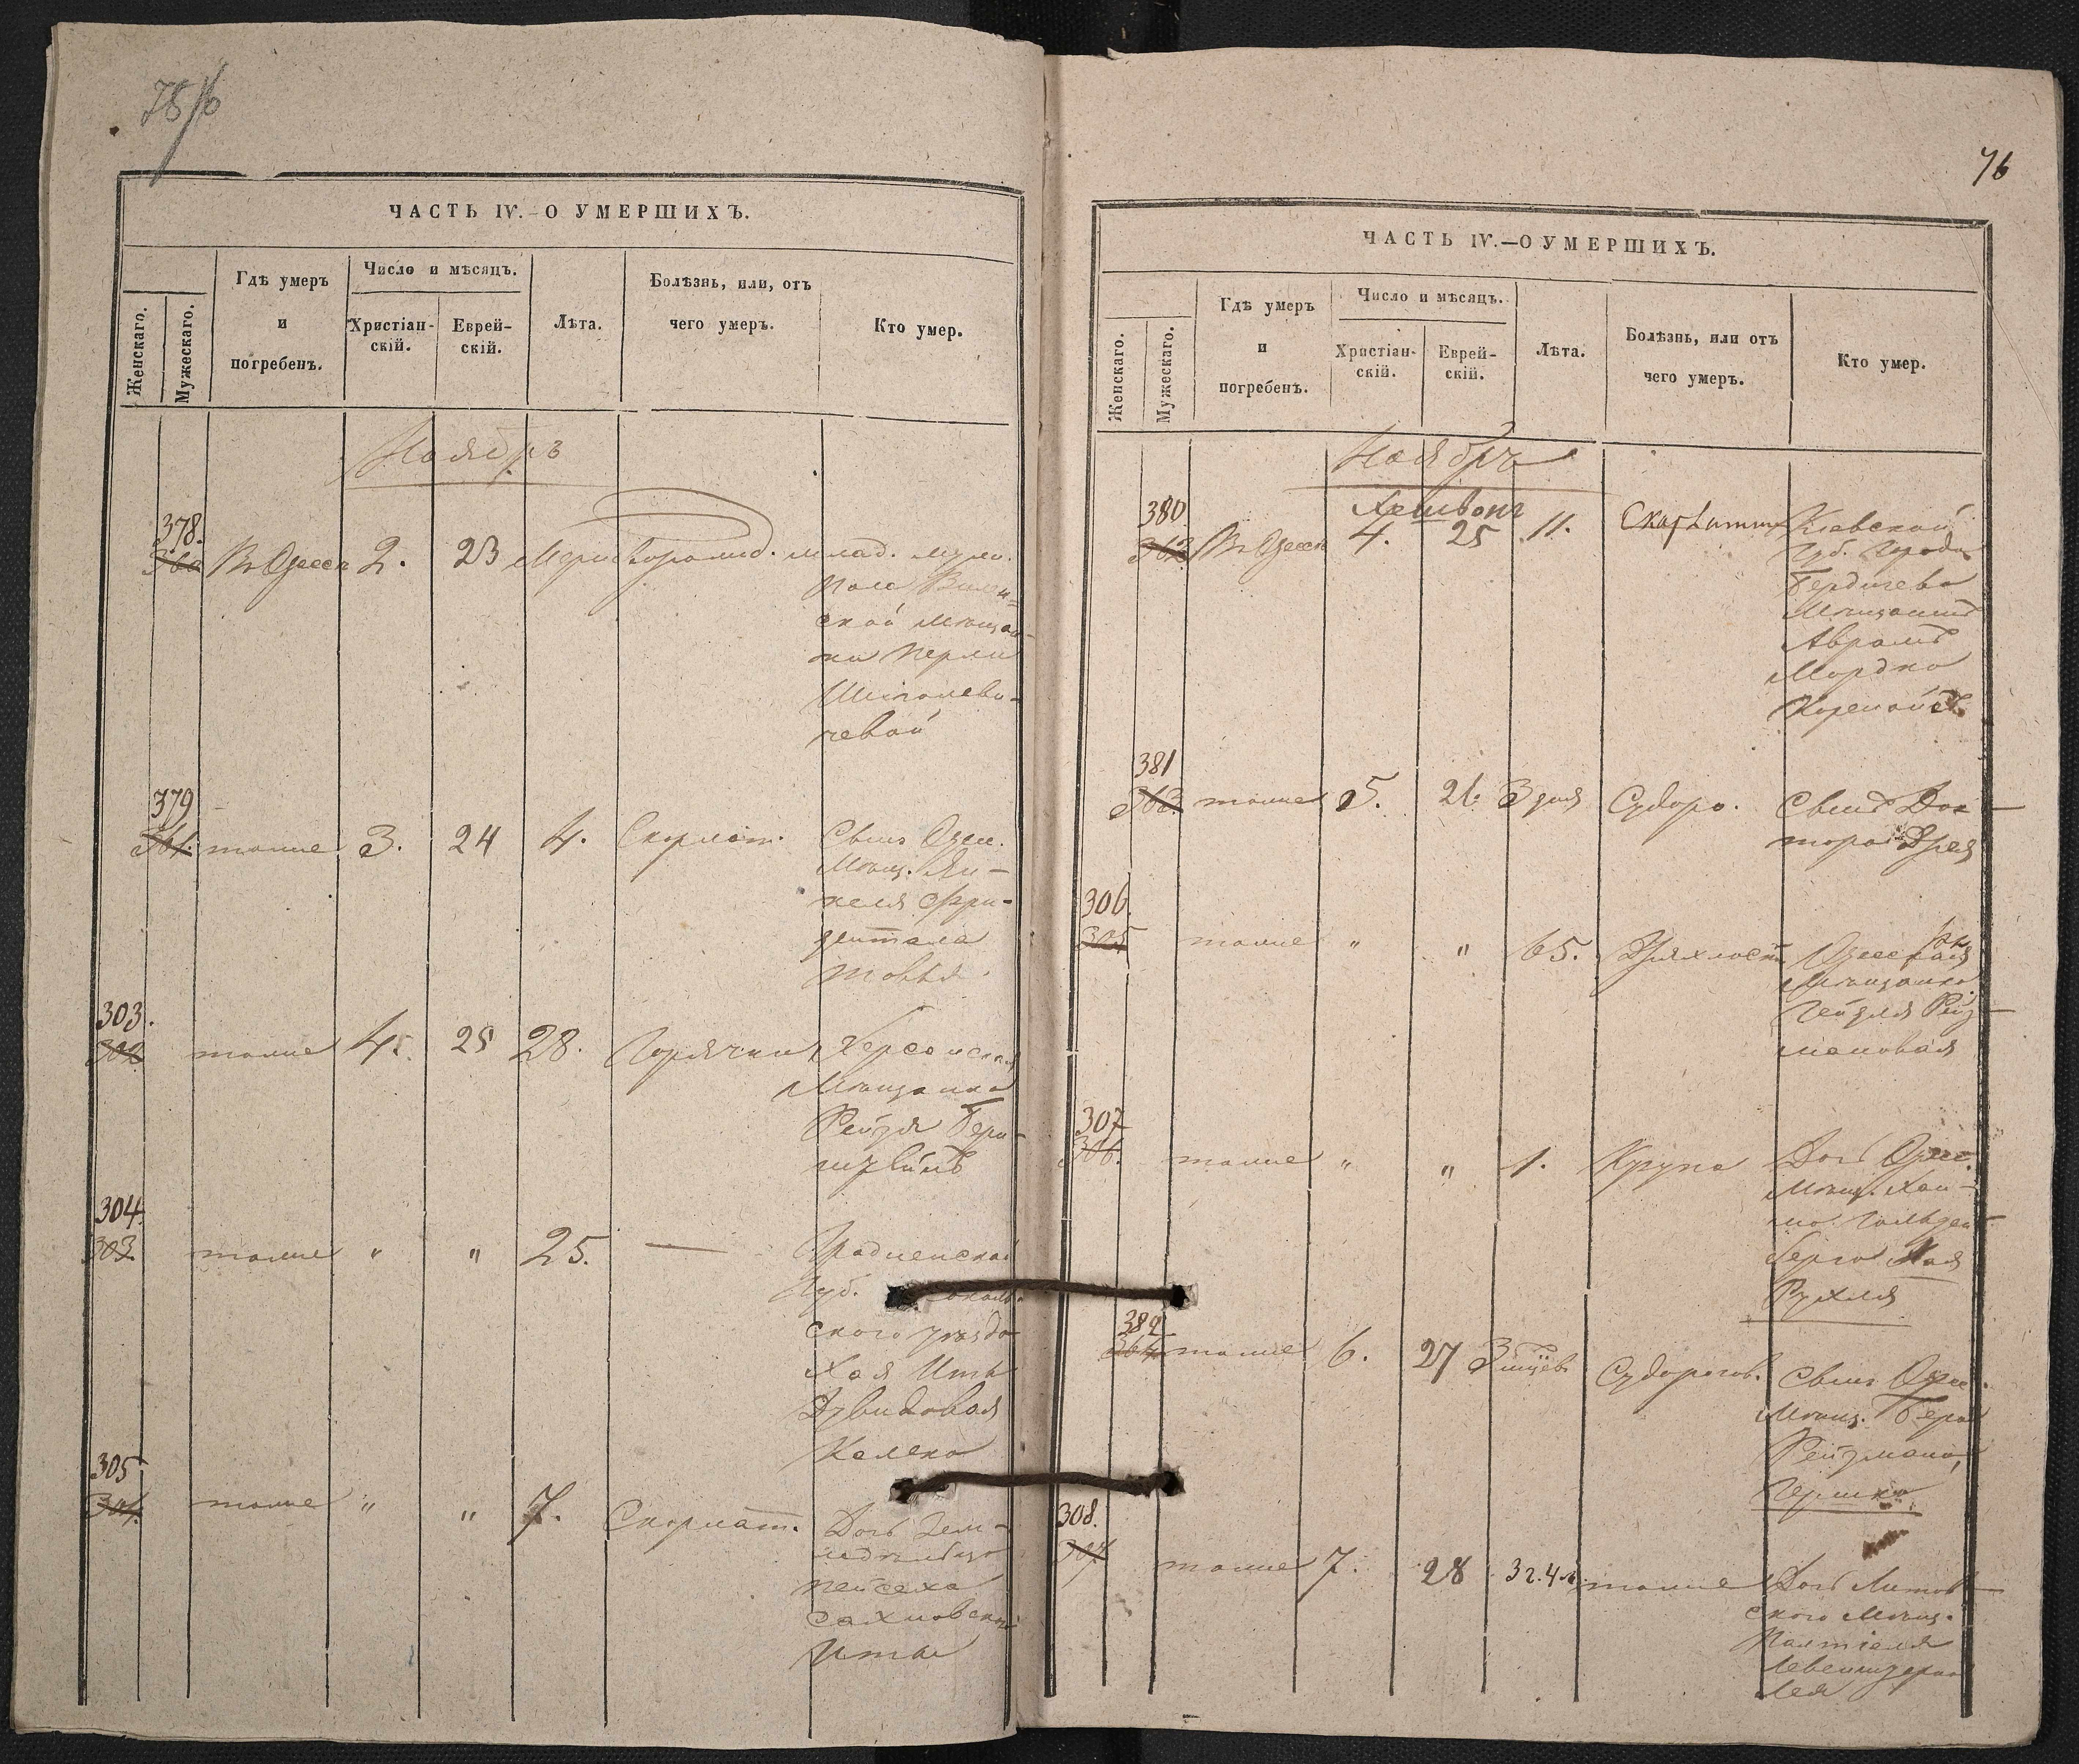 75/б
ЧАСТЬ IV.—О УМЕРШИХЪ.
Женскаго.
Мужескаго.
Гдѣ умеръ
и
погребенъ.
Число и мѣсяцъ.
Христіан-
скій.
Еврей-
скій.
Лѣта.
Болѣзнь, или, отъ
чего умеръ.
Кто умер.
Ноябрь
378.
360 Въ Одессѣ 2. 23 Мертворожд. млад. муж.
пола Вилен=
ской мѣщан-
ки Перли
чевой
379
361. тоже 3. 24 4. Скарлат. Сынъ Одес.
Мѣщ. Ян-
келя Фри-
дентала
Товья
303.
302 тоже 4. 25 28. Горячки Херсонская
Мѣщанка
Рейзя Берн-
штейнъ
304.
303. тоже " " 25. — Гродненской
Губ.
ского уѣзда
Хая Ита
Давидовая
Калеко
305
304. тоже " " 7. Скарлат. Дочь Зем-
ледѣльца
Пейсаха
Сахновскаго
Ита
76
ЧАСТЬ IV.—О УМЕРШИХЪ.
Женскаго.
Мужескаго.
Гдѣ умеръ
и
погребенъ.
Число и мѣсяцъ.
Христіан-
скій.
Еврей-
скій.
Лѣта.
Болѣзнь, или отъ
чего умеръ.
Кто умер.
Ноябрь
Хешвонъ
380
362 Въ Одессѣ 4. 25 11. Скарлатин Кіевской
Губ. Города
Бердичева
Мѣщанинъ
Авромъ
Мордко
381
363. тоже 5. 26 3 дня Судоро. Сынъ Док-
тора
306.
305 тоже " " 65. Дряхлости Одесская
Мѣщанка
Рейз-
мановая
307
306. тоже " " 1. Крупа Дочь Одес.
Мѣщ. Хаи-
ма Гольден-
берга Хая
Рухля
382
364. тоже 6. 27 3 мѣсяц. Судорогов. Сынъ Одес.
Мѣщ. Бера
Рейзмана,
Гершко
308.
307 тоже 7. 28 3 г. 4 м. тоже Дочь Литов-
ского Мѣщ.
Палтіеля
Лея